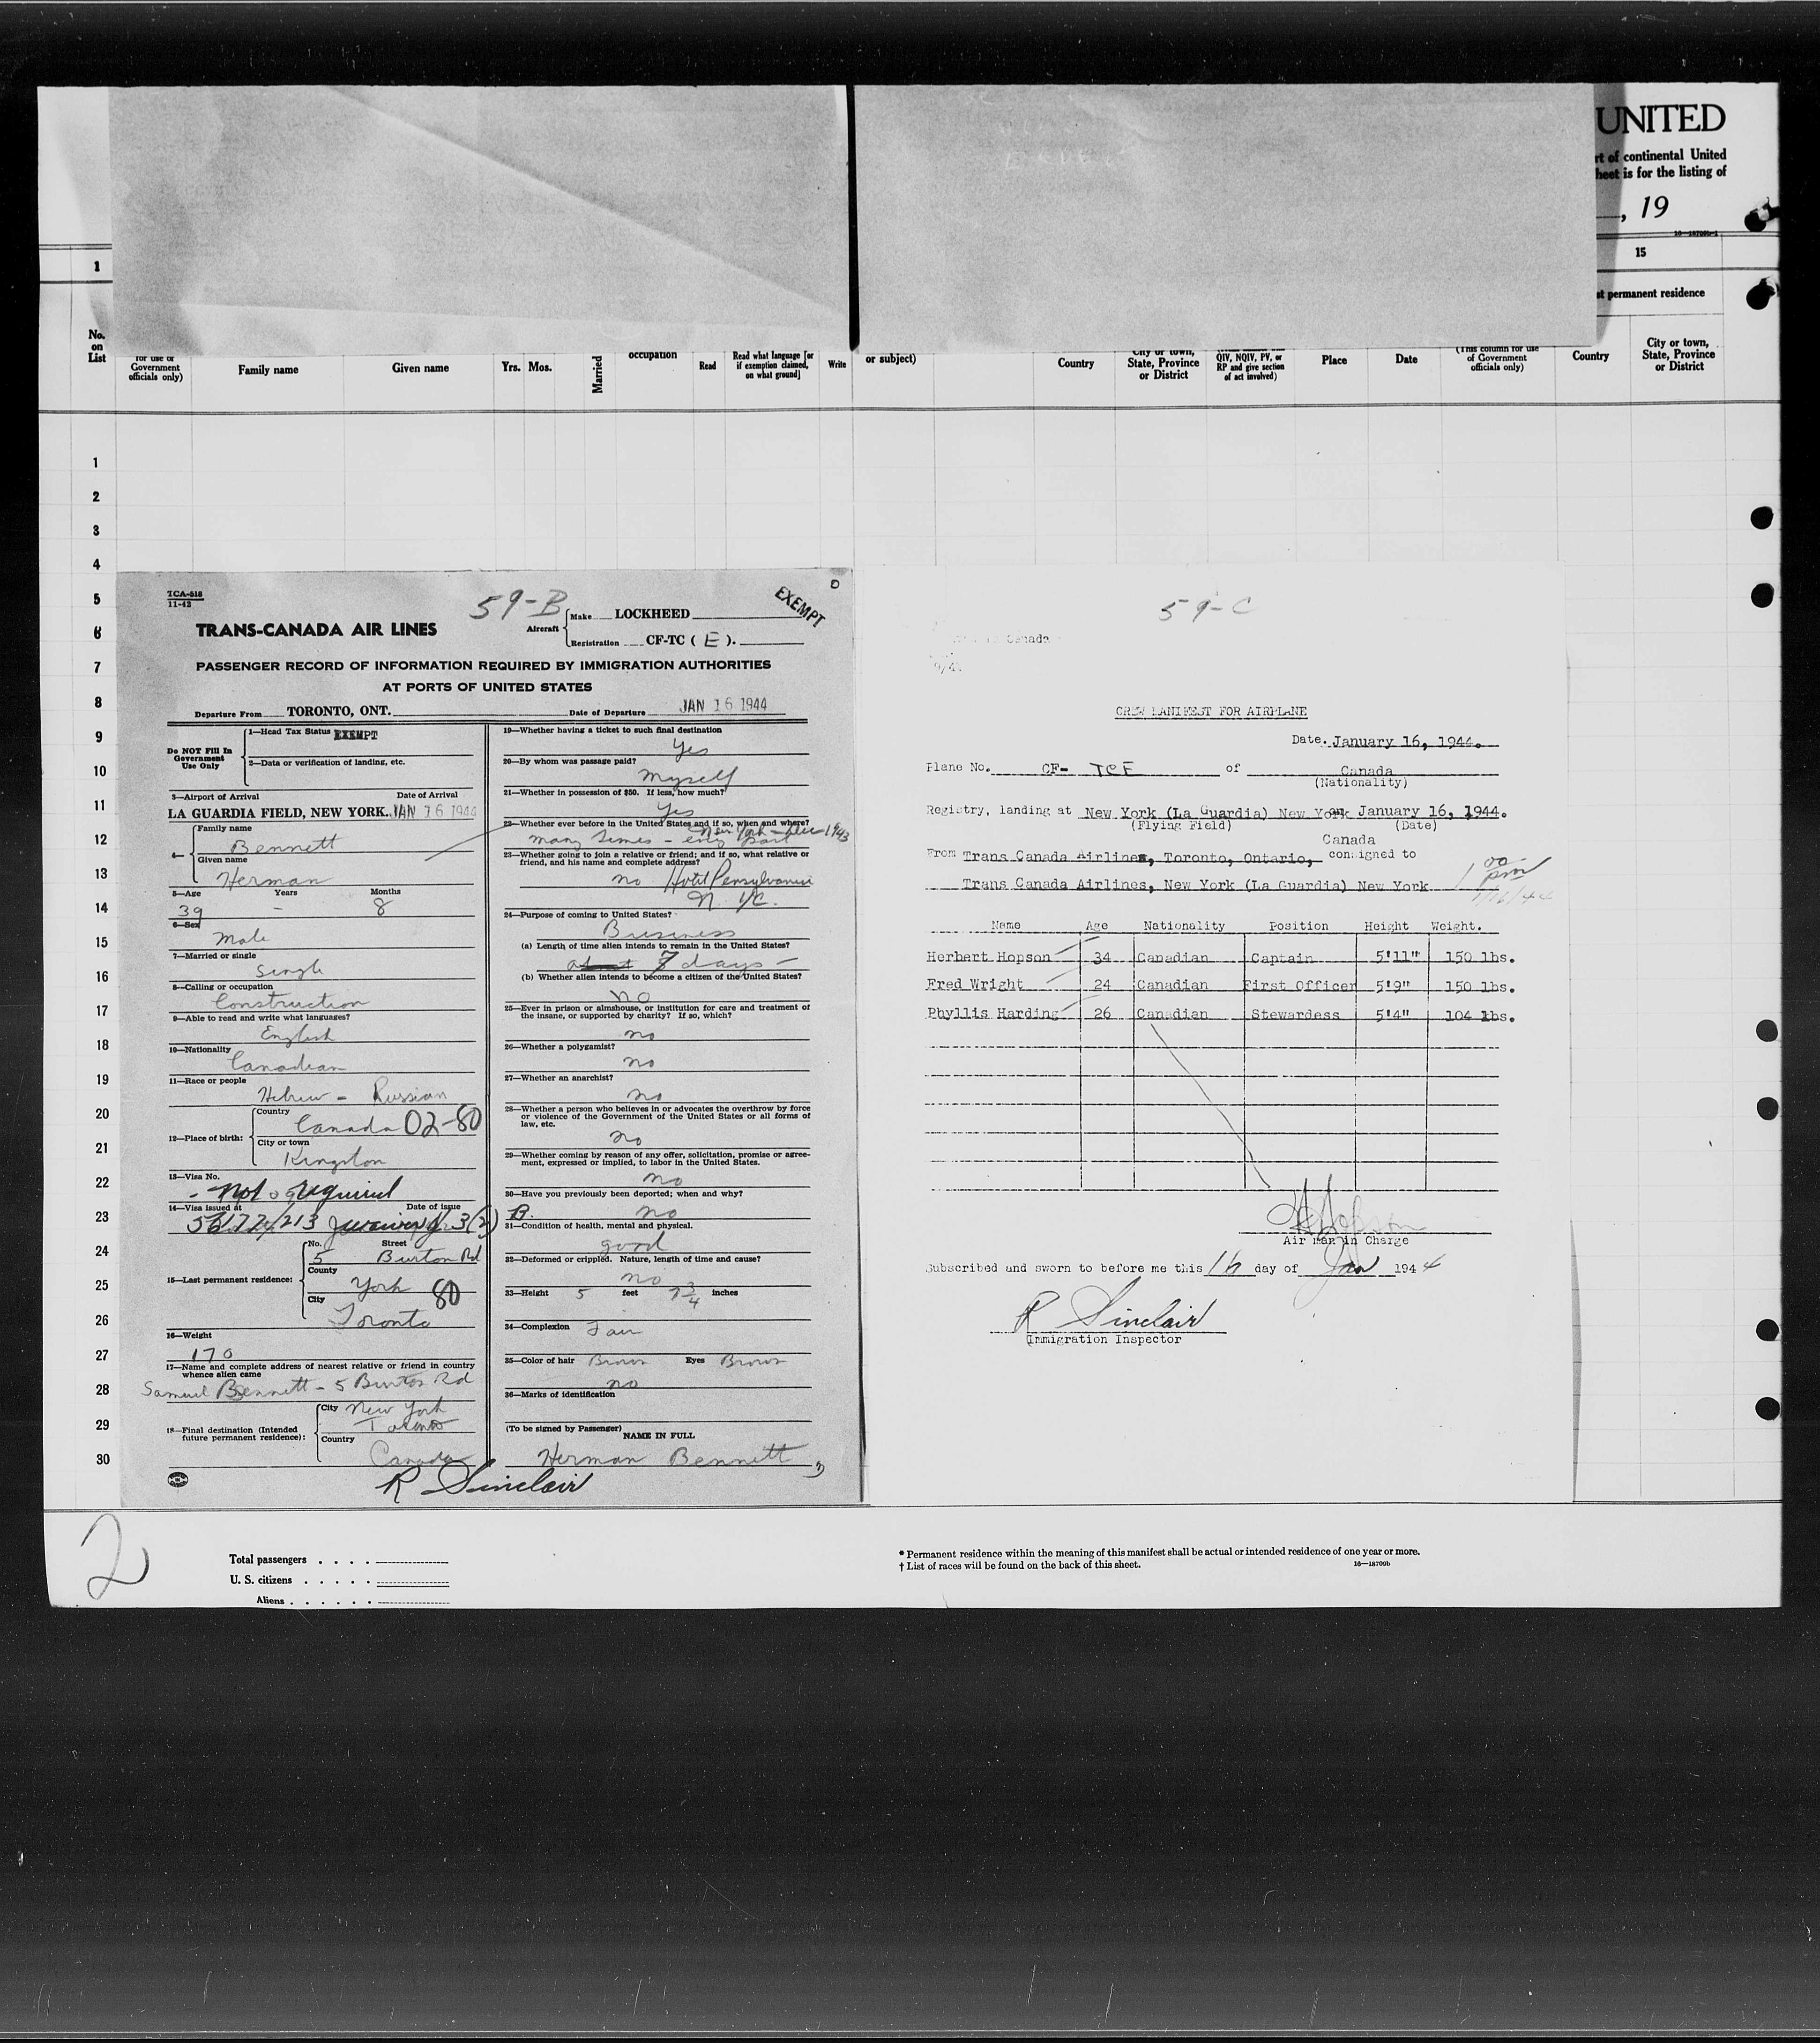 UNITED
rt of continental United
heet is for the listing of
, 19
16—18709b-1
1
15
t permanent residence
No. on List
for use of Government officials only)
Family name
Given name
Yrs. Mos.
Married
occupation
Read
Read what language [or if exemption claimed, on what ground]
Write
or subject)
Country
City or town, State, Province or District
QIV, NQIV, PV, or RP and give section of act involved)
Place
Date
(This column for use of Government officials only)
Country
City or town, State, Province or District
1
2
3
4
5
6
7
8
9
10
11
12
13
14
15
16
17
18
19
20
21
22
23
24
25
26
27
28
29
30
TCA-518
11-42
59-B
EXEMPT
TRANS-CANADA AIR LINES
Aircraft
Make LOCKHEED
Registration CF-TC ( E ).
PASSENGER RECORD OF INFORMATION REQUIRED BY IMMIGRATION AUTHORITIES
AT PORTS OF UNITED STATES
Departure From TORONTO, ONT. Date of Departure JAN 16 1944
Do NOT Fill In Government Use Only
1—Head Tax Status EXEMPT
2—Data or verification of landing, etc.
3—Airport of Arrival Date of Arrival
LA GUARDIA FIELD, NEW YORK. JAN 16 1944
4— Family name
Bennett
Given name
Herman
5—Age Years Months
39 - 8
6—Sex
Male
7—Married or single
Single
8—Calling or occupation
Construction
9—Able to read and write what languages?
English
10—Nationality
Canadian
11—Race or people
Hebrew - Russian
12—Place of birth:
Country
Canada 02-80
City or town
Kingston
13—Visa No.
- Not required
14—Visa issued at Date of issue
3(2)
15—Last permanent residence:
No. Street
5 Burton Rd
County
York 80
City
Toronto
16—Weight
170
17—Name and complete address of nearest relative or friend in country
whence alien came
Samuel Bennett - 5 Burton Rd
18—Final destination (Intended
future permanent residence):
City New York
Toronto
Country
Canada
19—Whether having a ticket to such final destination
Yes
20—By whom was passage paid?
Myself
21—Whether in possession of $50. If less, how much?
Yes
22—Whether ever before in the United States and if so, when and where?
many times - New York - Dec 1943
23—Whether going to join a relative or friend; and if so, what relative or
friend, and his name and complete address?
no Hotel Pensylvania
N.Y.C.
24—Purpose of coming to United States?
Business
(a) Length of time alien intends to remain in the United States?
7 days -
(b) Whether alien intends to become a citizen of the United States?
no
25—Ever in prison or almshouse, or institution for care and treatment of
the insane, or supported by charity? If so, which?
no
26—Whether a polygamist?
no
27—Whether an anarchist?
no
28—Whether a person who believes in or advocates the overthrow by force
or violence of the Government of the United States or all forms of
law, etc.
no
29—Whether coming by reason of any offer, solicitation, promise or agree-
ment, expressed or implied, to labor in the United States.
no
30—Have you previously been deported; when and why?
no
31—Condition of health, mental and physical.
good
32—Deformed or crippled. Nature, length of time and cause?
no
33—Height 5 feet 7 3/4 inches
34—Complexion Fair
35—Color of hair Brown Eyes Brown
no
36—Marks of identification
(To be signed by Passenger)
NAME IN FULL
Herman Bennett
R Sinclair
59-C
Canada
CREW MANIFEST FOR AIRPLANE
Date. January 16, 1944.
Plane No. CF- TCE of Canada
(Nationality)
Registry, landing at New York (La Guardia) New York on January 16, 1944.
(Flying Field) (Date)
Canada
From Trans Canada Airlines, Toronto, Ontario, consigned to
Trans Canada Airlines, New York (La Guardia) New York
1 00 pm
1/16/44
Name Age Nationality Position Height Weight.
Herbert Hopson 34 Canadian Captain 5'11" 150 lbs.
Fred Wright 24 Canadian First Officer 5'9" 150 lbs.
Phyllis Harding 26 Canadian Stewardess 5'4" 104 lbs.
H Hopson
Air man in Charge
Subscribed and sworn to before me this 16 day of Jan 1944
R Sinclair
Immigration Inspector
2
Total passengers . . . .
U. S. citizens . . . . .
Aliens . . . . . .
* Permanent residence within the meaning of this manifest shall be actual or intended residence of one year or more.
† List of races will be found on the back of this sheet.
16—18709b